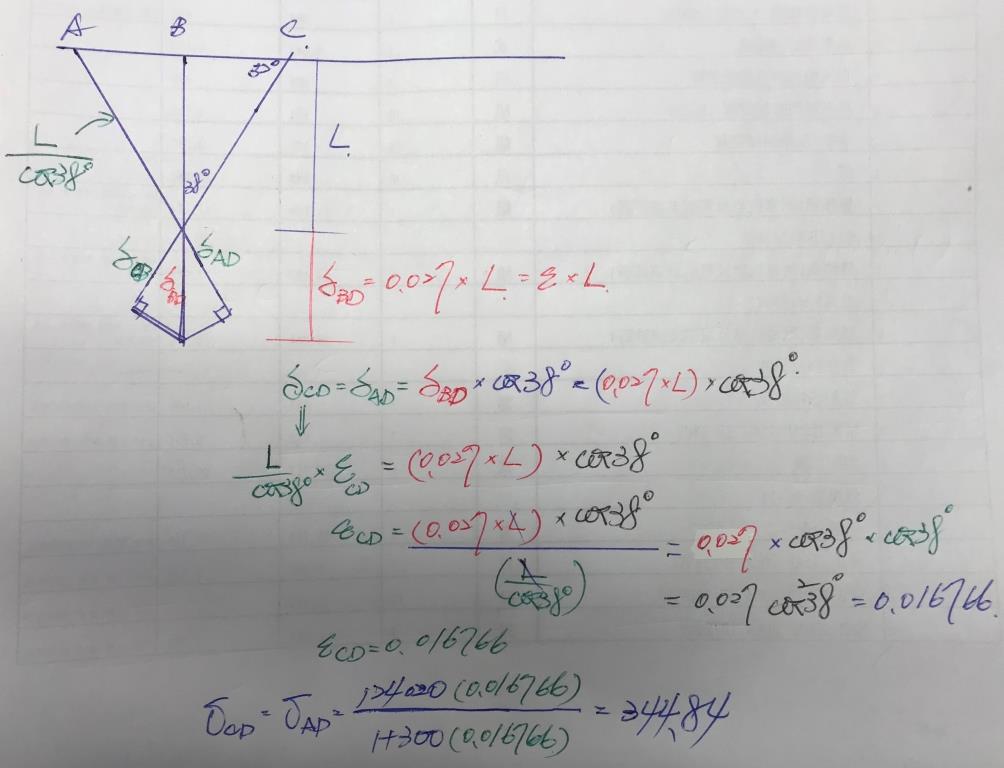 A B C
L
L/cos38°
38°
δAD
δBD = 0.027 × L = ε × L
δCD = δAD = δBD × cos38° = (0.027 × L) × cos38°
⇓
L/cos38° × εCD = (0.027 × L) × cos38°
εCD = (0.027 × L) × cos38° / (L/cos38°) = 0.027 × cos38° × cos38°
= 0.027 cos²38° = 0.016766
εCD = 0.016766
σCD = σAD = 124020 (0.016766) / 1+300 (0.016766) = 344.84